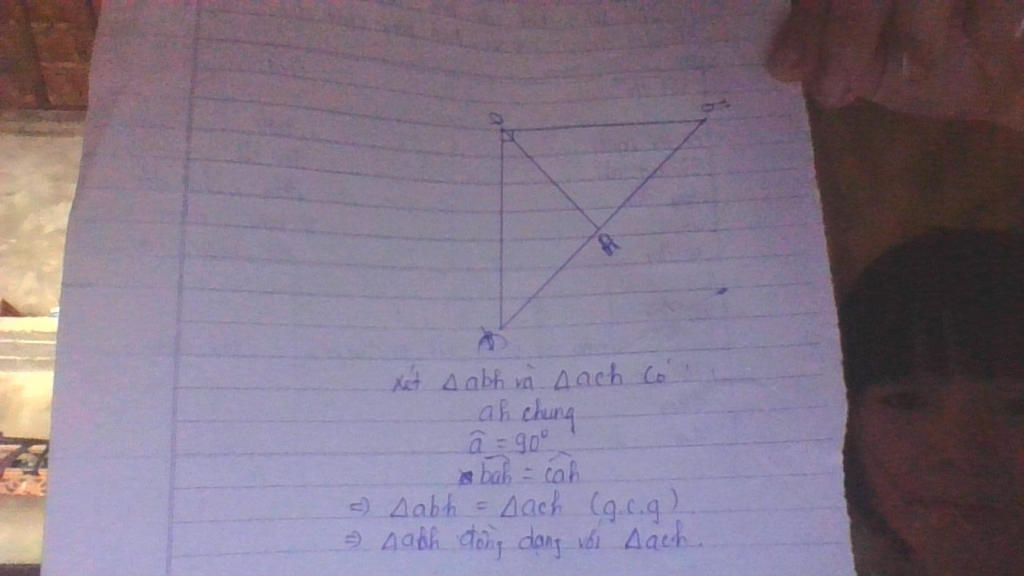 a
xét Δabh và Δach có
ah chung
â = 90°
bah = cah
=> Δabh = Δach (g.c.g)
=> Δabh đồng dạng với Δach.